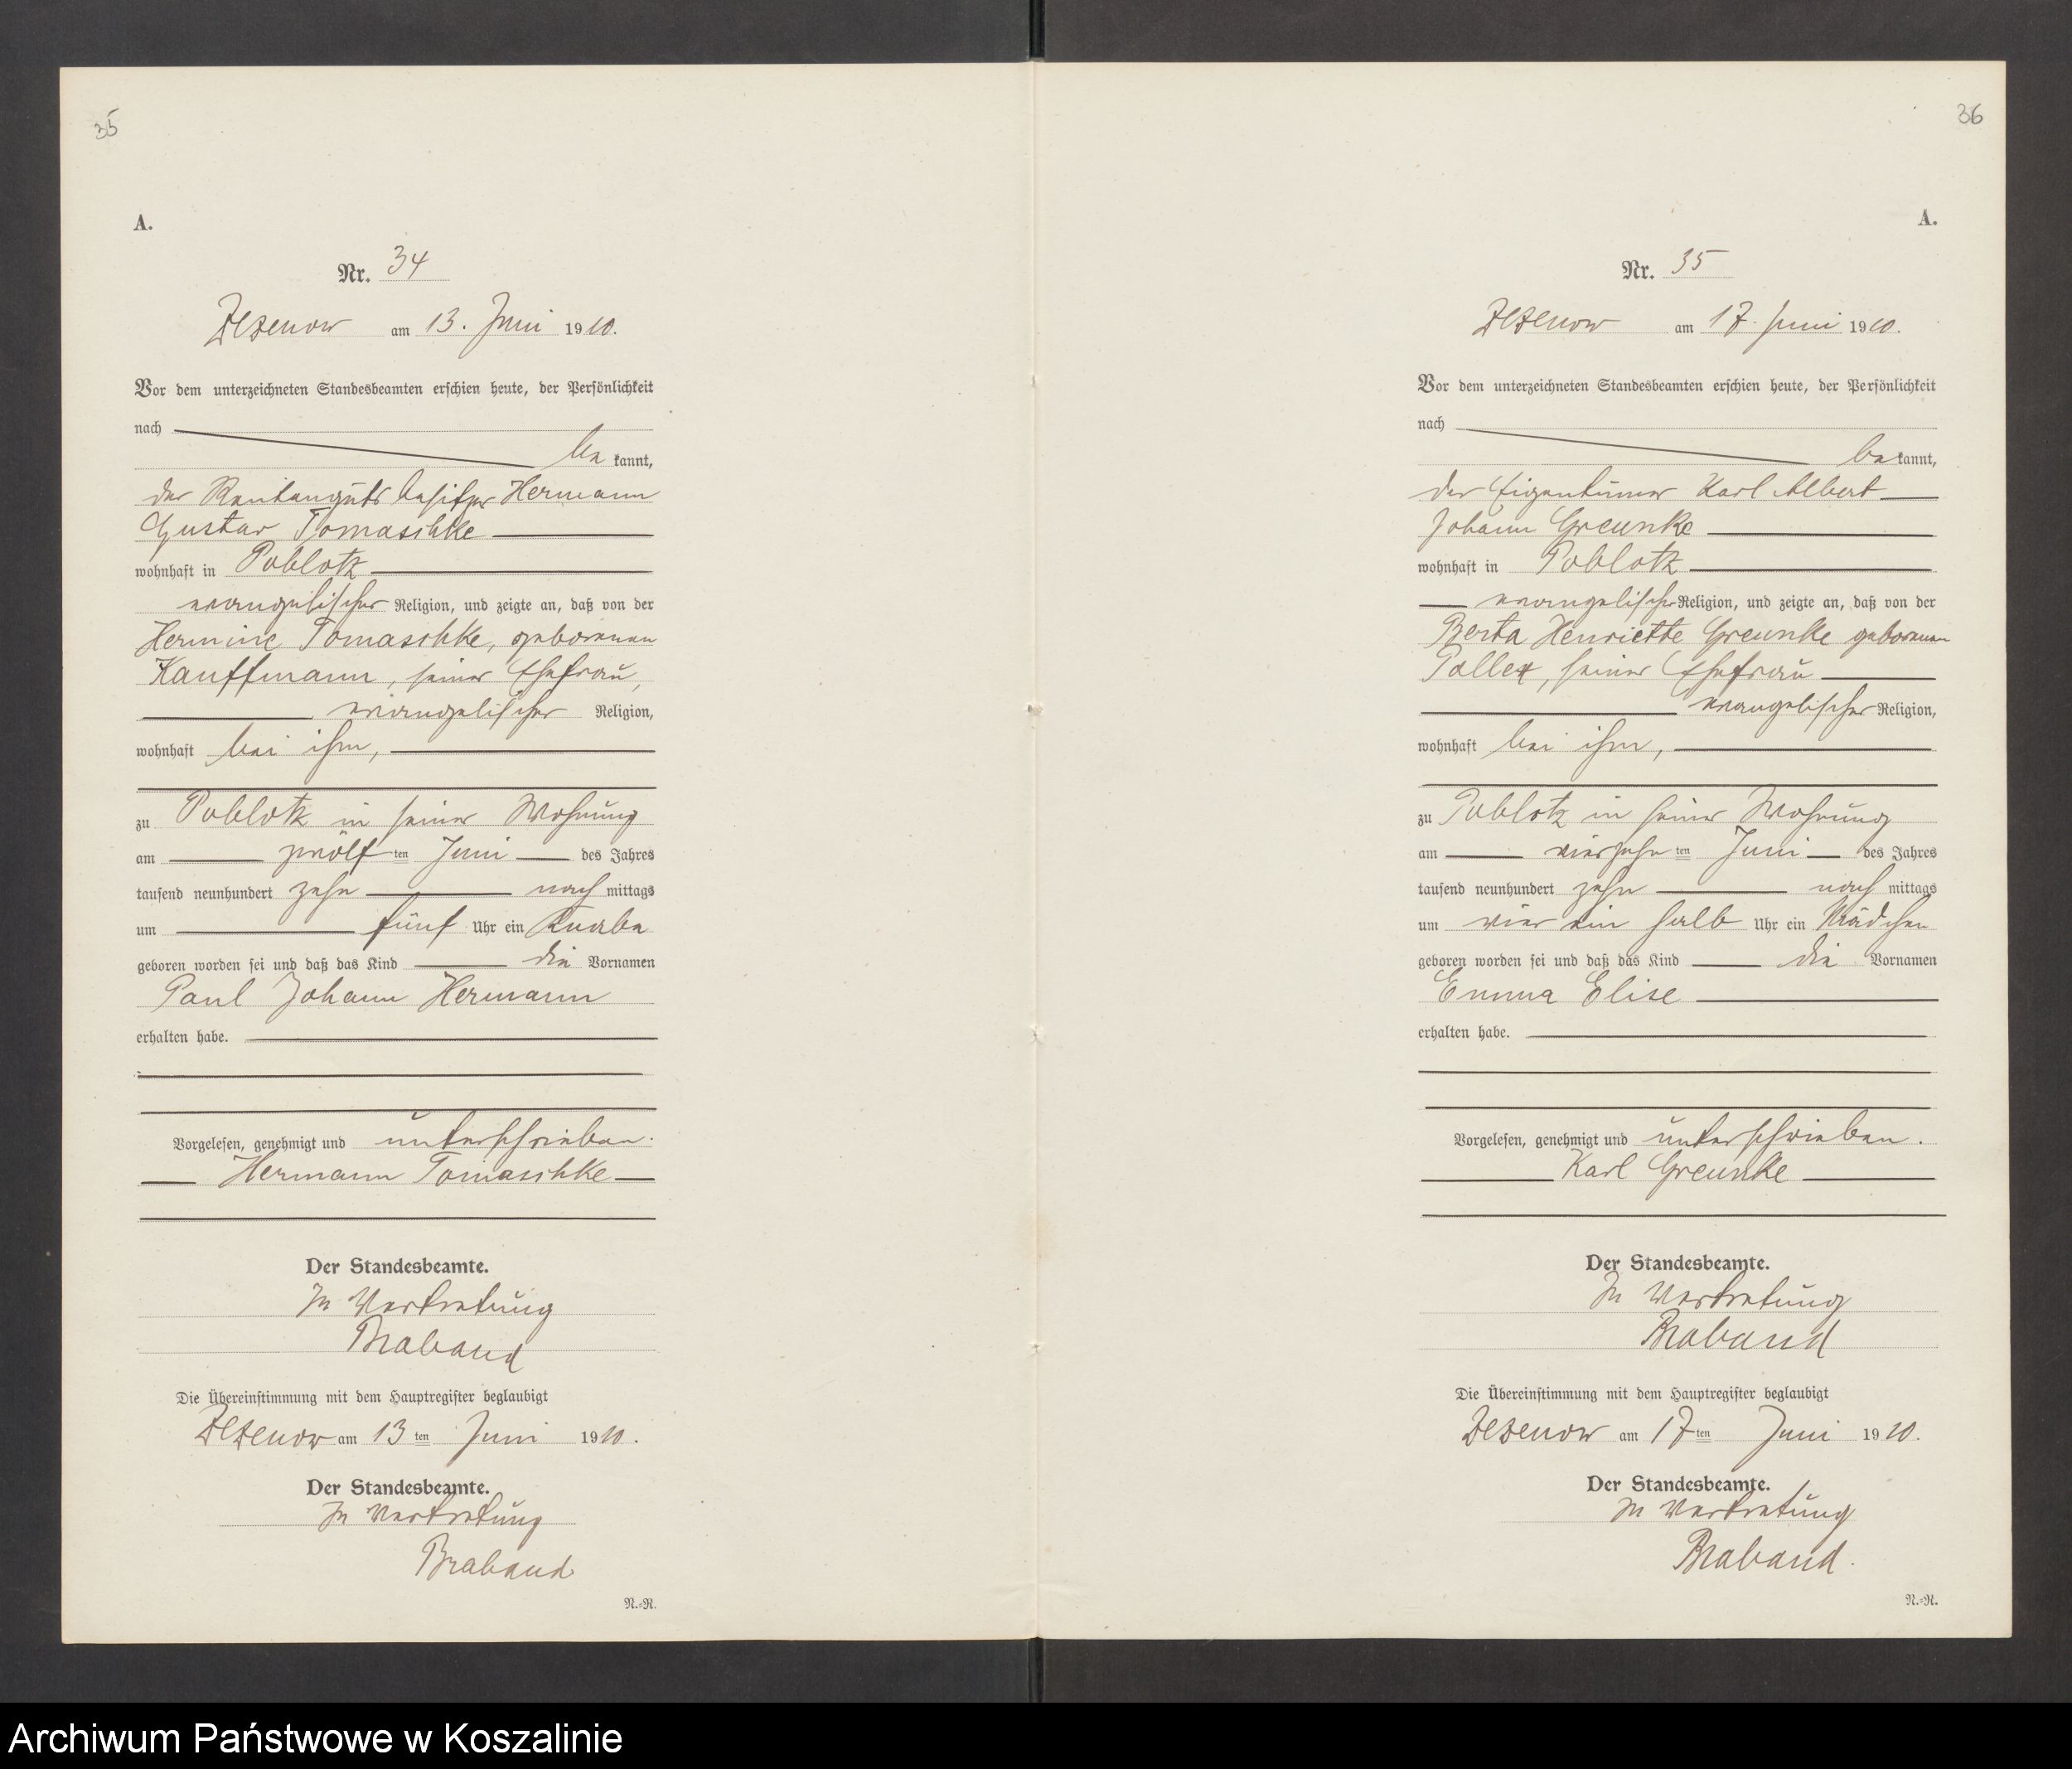 35
A.
Nr. 34
Zezenow am 13. Juni 1910.
Vor dem unterzeichneten Standesbeamten erschien heute, der Persönlichkeit
nach
be kannt,
der Rentengutsbesitzer Hermann
Gustav Tomaschke
wohnhaft in Poblotz
evangelischer Religion, und zeigte an, daß von der
Hermine Tomaschke, geborenen
Kauffmann, seiner Ehefrau,
evangelischer Religion,
wohnhaft bei ihm,
zu Poblotz in seiner Wohnung
am zwölf ten Juni des Jahres
tausend neunhundert zehn nach mittags
um fünf Uhr ein Knabe
geboren worden sei und daß das Kind die Vornamen
Paul Johann Hermann
erhalten habe.
Vorgelesen, genehmigt und unterschrieben.
Hermann Tomaschke
Der Standesbeamte.
In Vertretung
Braband
Die Übereinstimmung mit dem Hauptregister beglaubigt
Zezenow am 13 ten Juni 1910.
Der Standesbeamte.
In Vertretung
Braband
N.=R.
36
A.
Nr. 35
Zezenow am 17. Juni 1910.
Vor dem unterzeichneten Standesbeamten erschien heute, der Persönlichkeit
nach
be kannt,
der Eigentümer Karl Albert
Johann Greunke
wohnhaft in Poblotz
evangelischer Religion, und zeigte an, daß von der
Berta Henriette Greunke geborenen
seiner Ehefrau
evangelischer Religion,
wohnhaft bei ihm,
zu Poblotz in seiner Wohnung
am vierzehn ten Juni des Jahres
tausend neunhundert zehn nach mittags
um vier ein halb Uhr ein Mädchen
geboren worden sei und daß das Kind die Vornamen
Emma Elise
erhalten habe.
Vorgelesen, genehmigt und unterschrieben.
Karl Greunke
Der Standesbeamte.
In Vertretung
Braband
Die Übereinstimmung mit dem Hauptregister beglaubigt
Zezenow am 17 ten Juni 1910.
Der Standesbeamte.
In Vertretung
Braband.
N.=R.
Archiwum Państwowe w Koszalinie